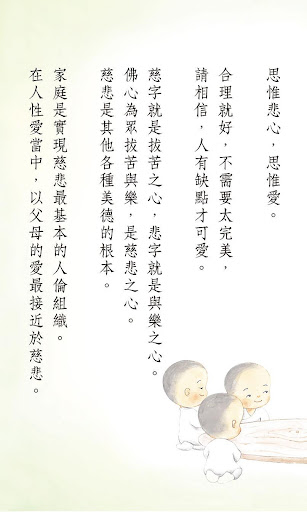 思惟悲心，思惟愛。
合理就好，不需要太完美，
請相信，人有缺點才可愛。
慈字就是拔苦之心，悲字就是與樂之心。
佛心為眾拔苦與樂，是慈悲之心。
慈悲是其他各種美德的根本。
家庭是實現慈悲最基本的人倫組織。
在人性愛當中，以父母的愛最接近於慈悲。